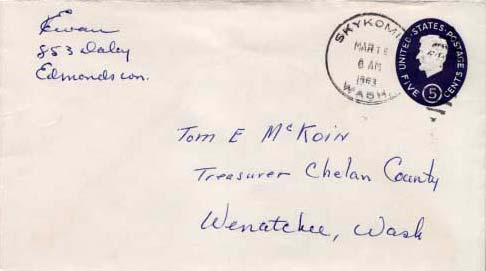 Ewan
853 Daley
Edmonds Wn.
SKYKOMI
MAR 18
8 AM
1963
WASH.
UNITED·STATES·POSTAGE
FIVE 5 CENTS
Tom E McKoin
Treasurer Chelan County
Wenatchee, Wash